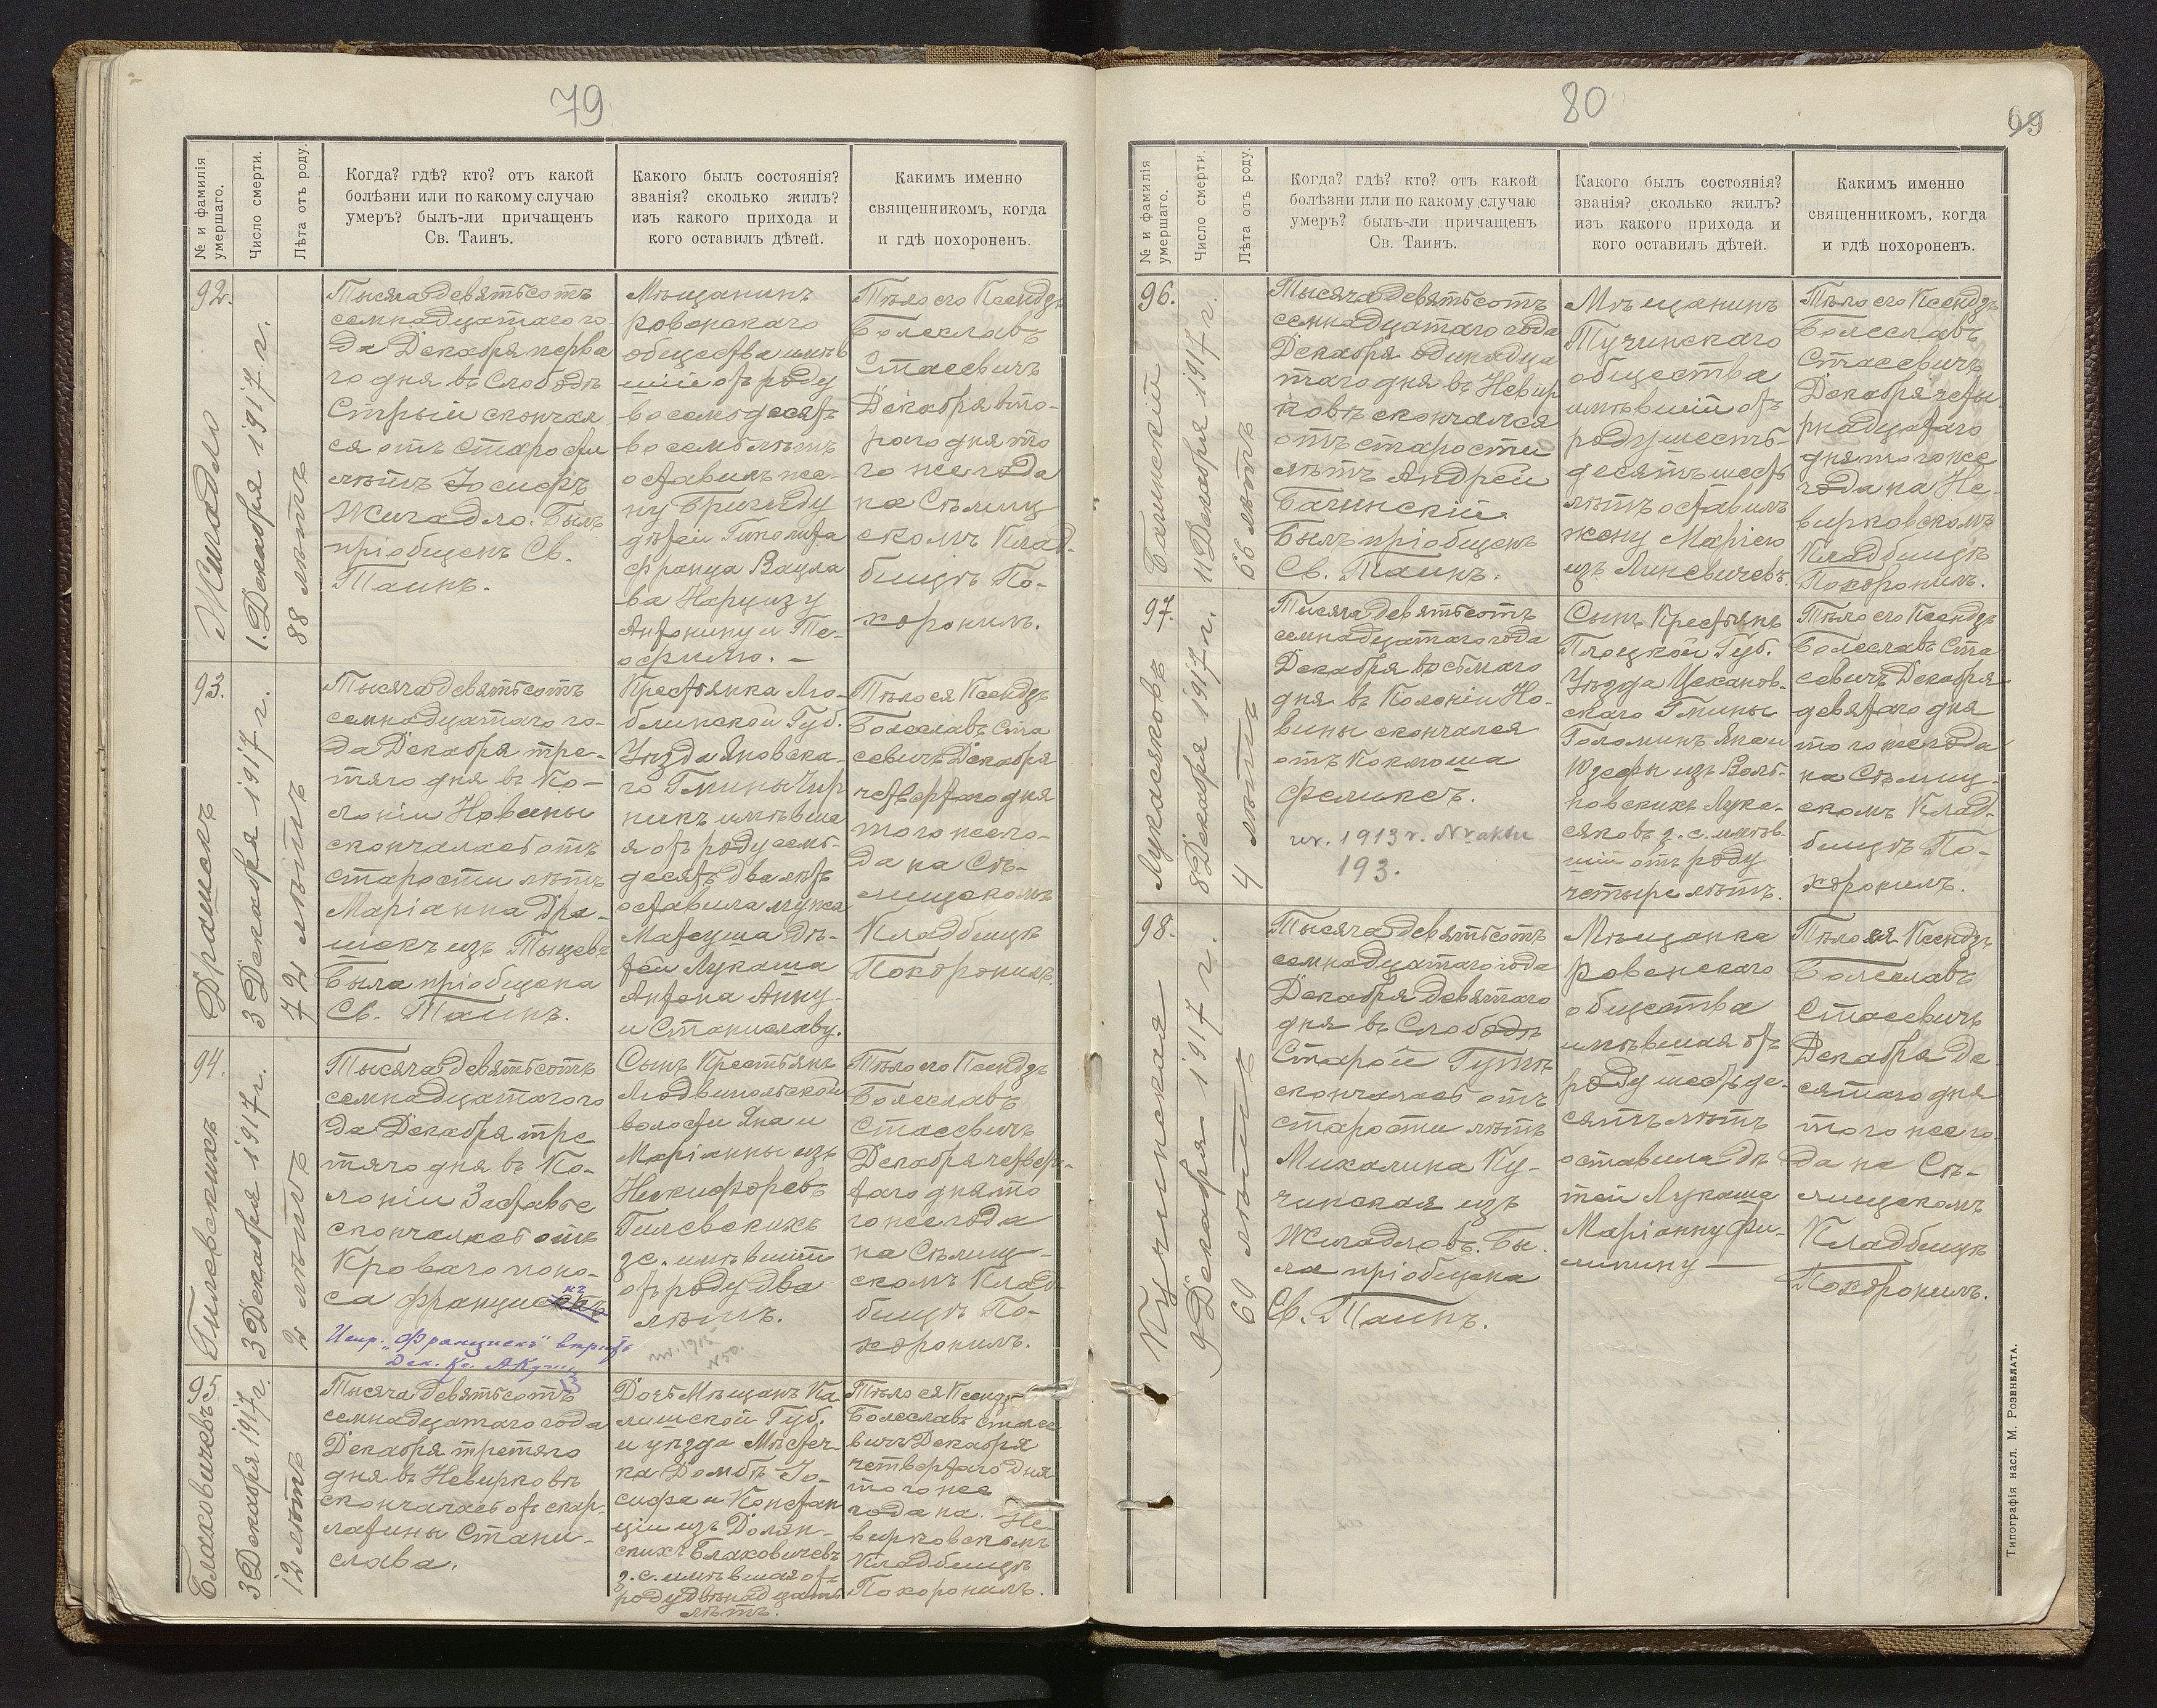 79
№ и фамилія умершаго.
Число смерти.
Лѣта отъ роду.
Когда? гдѣ? кто? отъ какой
болѣзни или по какому случаю
умеръ? былъ-ли причащенъ
Св. Таинъ.
Какого былъ состоянія?
званія? сколько жилъ?
изъ какого прихода и
кого оставилъ дѣтей.
Какимъ именно
священникомъ, когда
и гдѣ похороненъ.
92.
Жигадло
1. Декабря 1917 г.
88 лѣтъ
Тысяча девятьсотъ
семнадцатаго го-
да Декабря перва
го дня въ Слободѣ
Старый скончал
ся отъ старости
лѣтъ Іосифъ
Жигадло. Былъ
пріобщенъ Св.
Таинъ.
Мѣщанинъ
Ровенскаго
общества имѣв
шій отъ роду
восемьдесятъ
восемь лѣтъ
оставилъ же-
ну Бригиду
дѣтей Гиполита
Франца Вацла
ва Нарцизу
Антонину и Те-
офилю. —
Тѣло его Ксендзъ
Болеславъ
Стасевичъ
Декабря вто-
раго дня то
го же года
на Сѣлищ
скомъ Клад-
бищѣ По-
хоронилъ.
93.
Драшекъ
3 Декабря 1917 г.
72 лѣтъ
Тысяча девятьсотъ
семнадцатаго го-
да Декабря тре-
тяго дня въ Ко-
лоніи Новины
скончалась отъ
старости лѣтъ
Маріанна Дра-
шекъ изъ Тыцевъ
Была пріобщена
Св. Таинъ.
Крестьянка Лю-
блинской Губ.
Уѣзда Яновска-
го Гмины Чир
никъ имѣвша
я отъ роду семь-
десятъ два лѣтъ
оставила мужа
Матеуша дѣ-
тей Лукаша
Антона Анну
и Станиславу.
Тѣло ея Ксендзъ
Болеславъ Ста
севичъ Декабря
четвертаго дня
того же го-
да на Сѣ-
лищскомъ
Кладбищѣ
Похоронилъ.
94.
Гилевскихъ
3 Декабря 1917 г.
2 лѣтъ
Тысяча девятьсотъ
семнадцатаго го
да Декабря тре
тяго дня въ Ко-
лоніи Заставье
скончался отъ
Кроваго поно-
са Францискъ
Испр. „Францискъ" вѣрно
Дек. Кс.
Сынъ Крестьянъ
Людвипольской
волости Яна и
Маріанны изъ
Никифоровъ
Гилевскихъ
зс. имѣвшій
отъ роду два
лѣтъ.
ur. 1915
№50.
Тѣло его Ксендзъ
Болеславъ
Стасевичъ
Декабря четвер-
таго дня то
го же года
на Сѣлищ-
скомъ Клад-
бищѣ По-
хоронилъ.
95
Блаховичевъ
3 Декабря 1917 г.
12 лѣтъ
Тысяча девятьсотъ
семнадцатаго года
Декабря третяго
дня въ Невирковѣ
скончалась отъ скар-
латины Стани-
слава.
Дочь Мѣщанъ Ка
лишской Губ.
и уѣзда Мѣстеч-
ка Домбѣ Іо-
сифа и Констан
ціи изъ Долян-
скихъ Блаховичевъ
з.с. имѣвшая отъ
роду двѣнадцать
лѣтъ.
Тѣло ея Ксендзъ
Болеславъ Стасе
вичъ Декабря
четвертаго дня
того же
года на Не-
вирковскомъ
Кладбищѣ
Похоронилъ.
80
69
№ и фамилія умершаго.
Число смерти.
Лѣта отъ роду.
Когда? гдѣ? кто? отъ какой
болѣзни или по какому случаю
умеръ? былъ-ли причащенъ
Св. Таинъ.
Какого былъ состоянія?
званія? сколько жилъ?
изъ какого прихода и
кого оставилъ дѣтей.
Какимъ именно
священникомъ, когда
и гдѣ похороненъ.
96.
Бачинскій
11 Декабря 1917 г.
66 лѣтъ
Тысяча девятьсотъ
семнадцатаго года
Декабря одинадца
таго дня въ Невир
ковѣ скончался
отъ старости
лѣтъ Андрей
Бачинскій.
Былъ пріобщенъ
Св. Таинъ.
Мѣщанинъ
Тучинскаго
общества
имѣвшій отъ
роду шесть-
десятъ шесть
лѣтъ оставилъ
жену Марію
изъ Линевичевъ.
Тѣло его Ксендзъ
Болеславъ
Стасевичъ
Декабря четы-
рнадцатаго
дня того же
года на Не-
вирковскомъ
Кладбищѣ
Похоронилъ.
97.
Лукасяковъ
8 Декабря 1917 г.
4 лѣтъ
Тысяча девятьсотъ
семнадцатаго года
Декабря восьмаго
дня въ Колоніи Но-
вины скончался
отъ Коклюша
Феликсъ.
ur. 1913 r. Nr aktu
193.
Сынъ Крестьянъ
Плоцкой Губ.
Уѣзда Цеханов-
скаго Гмины
Голоминъ Яна и
Юзефы изъ Воль-
новскихъ Лука-
сяковъ з.с. имѣв-
шій отъ роду
четыре лѣтъ.
Тѣло его Ксендзъ
Болеславъ Ста
севичъ Декабря
девятаго дня
того же года
на Сѣлищ-
скомъ Клад-
бищѣ По-
хоронилъ.
98.
Кучинская
9 Декабря 1917 г.
60 лѣтъ
Тысяча девятьсотъ
семнадцатаго года
Декабря девятаго
дня въ Слободѣ
Старой Гутѣ
скончалась отъ
старости лѣтъ
Михалина Ку-
чинская изъ
Жигадловъ. Бы-
ла пріобщена
Св. Таинъ.
Мѣщанка
Ровенскаго
общества
имѣвшая отъ
роду шестьде-
сятъ лѣтъ
оставила дѣ
тей Лукаша
Маріанну Фи-
липину —
Тѣло ея Ксендзъ
Болеславъ
Стасевичъ
Декабря де
сятаго дня
того же го-
да на Сѣ-
лищскомъ
Кладбищѣ
Похоронилъ.
Типографія насл. М. Розенблата.